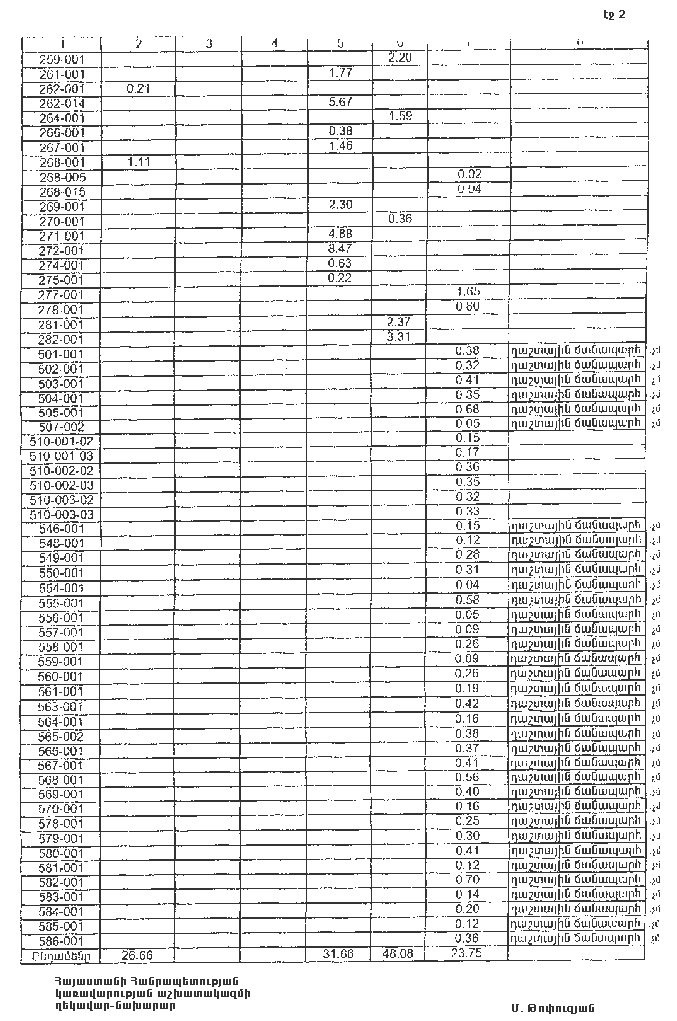 էջ 2
1 2 3 4 5 6 7 8
259-001 2.20
261-001 1.77
262-001 0.21
262-014 5.67
264-001 1.59
266-001 0.38
267-001 1.46
268-001 1.11
268-005 0.02
268-015 0.04
269-001 2.30
270-001 0.36
271-001 4.88
272-001 8.47
274-001 0.63
275-001 0.22
277-001 1.65
278-001 0.80
281-001 2.37
282-001 3.31
501-001 0.38 դաշտային ճանապարհ
502-001 0.32 դաշտային ճանապարհ
503-001 0.41 դաշտային ճանապարհ
504-001 0.35 դաշտային ճանապարհ
505-001 0.68 դաշտային ճանապարհ
507-002 0.05 դաշտային ճանապարհ
510-001-02 0.15
510-001-03 0.17
510-002-02 0.36
510-002-03 0.35
510-003-02 0.32
510-003-03 0.33
546-001 0.15 դաշտային ճանապարհ
548-001 0.12 դաշտային ճանապարհ
549-001 0.28 դաշտային ճանապարհ
550-001 0.31 դաշտային ճանապարհ
554-001 0.04 դաշտային ճանապարհ
555-001 0.58 դաշտային ճանապարհ
556-001 0.05 դաշտային ճանապարհ
557-001 0.09 դաշտային ճանապարհ
558-001 0.26 դաշտային ճանապարհ
559-001 0.09 դաշտային ճանապարհ
560-001 0.26 դաշտային ճանապարհ
561-001 0.19 դաշտային ճանապարհ
563-001 0.42 դաշտային ճանապարհ
564-001 0.16 դաշտային ճանապարհ
565-002 0.38 դաշտային ճանապարհ
566-001 0.37 դաշտային ճանապարհ
567-001 0.41 դաշտային ճանապարհ
568-001 0.56 դաշտային ճանապարհ
569-001 0.40 դաշտային ճանապարհ
570-001 0.16 դաշտային ճանապարհ
578-001 0.25 դաշտային ճանապարհ
579-001 0.30 դաշտային ճանապարհ
580-001 0.41 դաշտային ճանապարհ
581-001 0.12 դաշտային ճանապարհ
582-001 0.70 դաշտային ճանապարհ
583-001 0.14 դաշտային ճանապարհ
584-001 0.20 դաշտային ճանապարհ
585-001 0.12 դաշտային ճանապարհ
586-001 0.36 դաշտային ճանապարհ
Ընդամենը 26.66 31.66 48.08 23.75
Հայաստանի Հանրապետության
կառավարության աշխատակազմի
ղեկավար-նախարար
Մ. Թոփուզյան